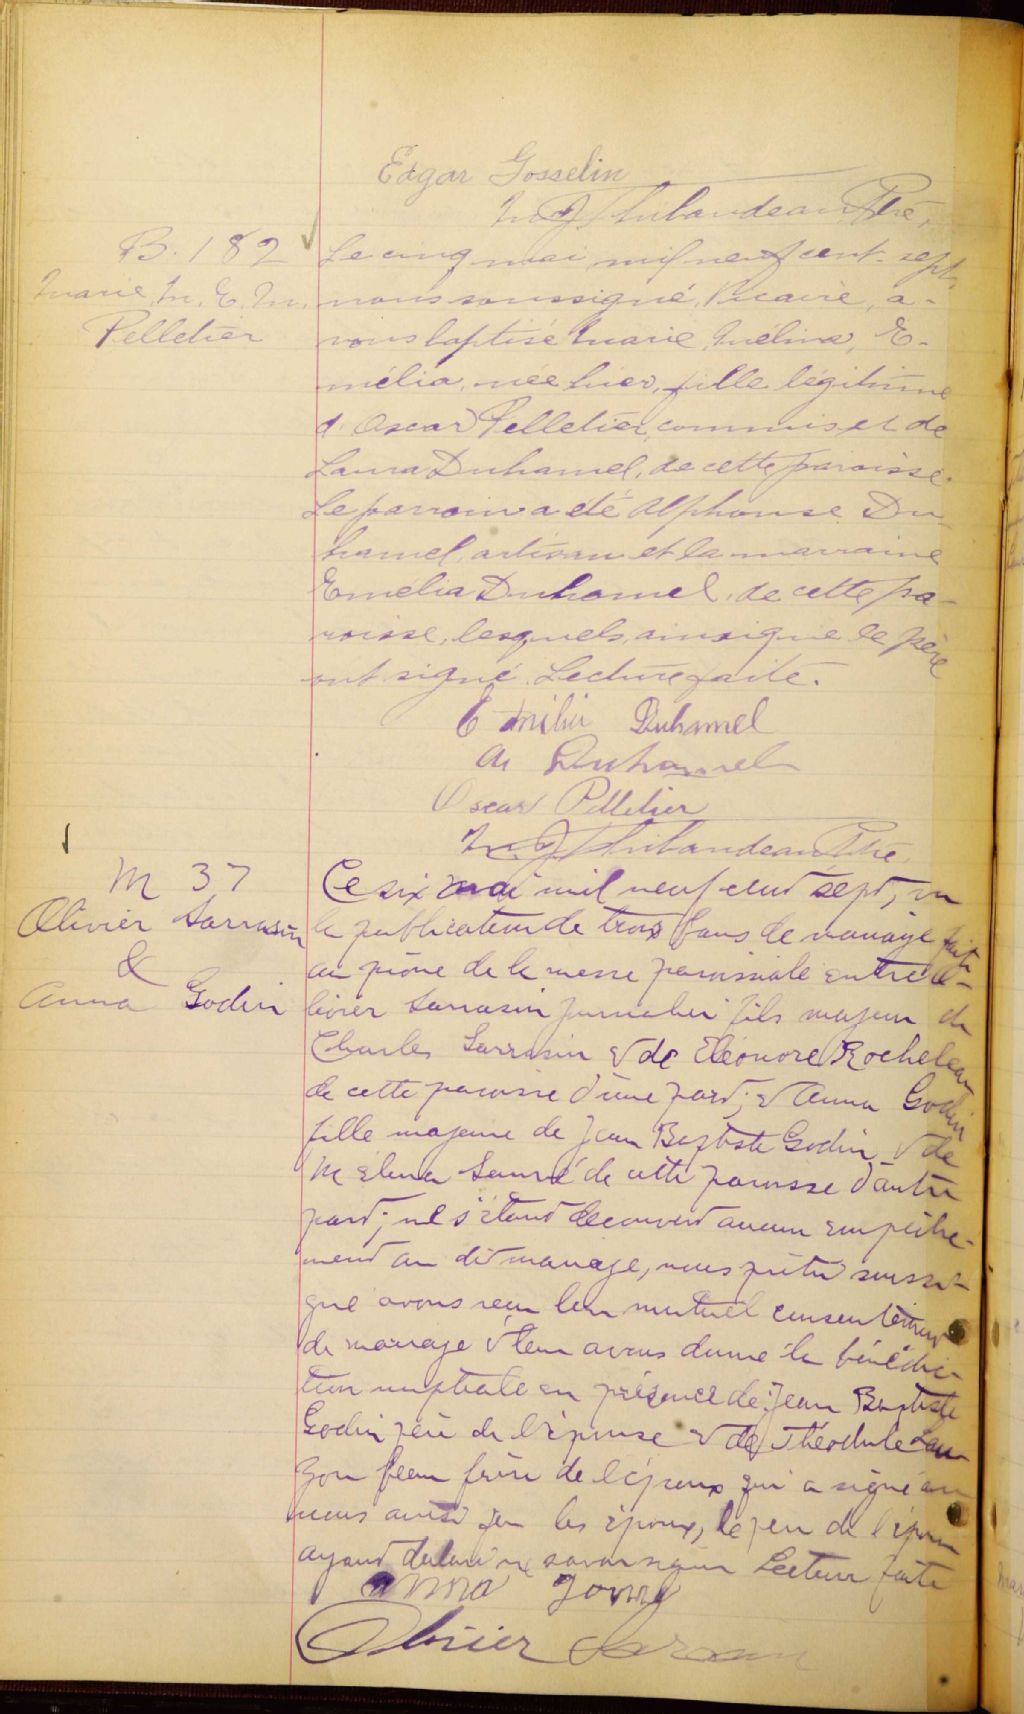 Edgar Gosselin
Thibaudeau Ptre,
B. 182
Marie M. E. M.
Pelletier
Le cinq mai mil neuf cent-sept,
nous soussigné, Vicaire, a-
vons baptisé Marie, Mélina, E-
mélia, née hier, fille légitime
d'Oscar Pelletier, commis et de
Laura Duhamel, de cette paroisse.
Le parrain a été Alphonse Du
hamel, artisan et la marraine
Emélia Duhamel, de cette pa-
roisse, lesquels, ainsi que le père
ont signé. Lecture faite.
Emilia Duhamel
Duhamel
Oscar Pelletier
Thibaudeau Ptre.
M 37
Olivier Sarrasin
&
Anna Godin
Ce six mai mil neuf cent sept, vu
la publication de trois bans de mariage faite
au prône de la messe paroissiale entre O-
livier Sarrasin journalier fils majeur de
Charles Sarrasin & de Eléonore Rocheleau
de cette paroisse d'une part; & Anna Godin
fille majeure de Jean Baptiste Godin & de
de cette paroisse d'autre
part; ne s'étant découvert aucun empêche-
ment au dit mariage, nous prêtre soussi-
gné avons reçu leur mutuel consentement
de mariage & leur avons donné la bénédic-
tion nuptiale en présence de Jean Baptiste
Godin père de l'épouse & de Théodule Lau
zon beau frère de l'époux qui a signé avec
nous ainsi que les époux, le père de l'épouse
ayant déclaré ne savoir signer Lecture faite
Anna
Olivier Sarrasin